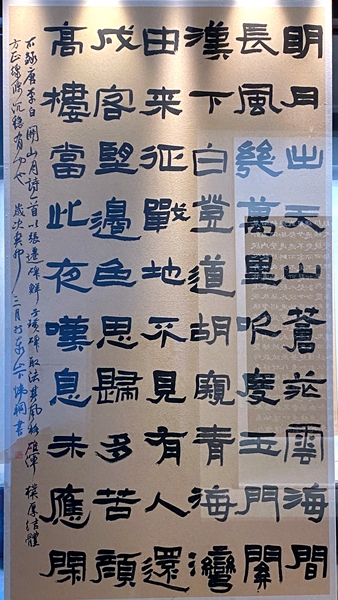 明月出天山蒼茫雲海間
長風幾萬里吹度玉門關
漢下白登道胡窺青海灣
由来征戰地不見有人還
戍客望邊色思歸多苦顏
高樓當此夜嘆息未應閑
右錄唐李白關山月詩一首以張遷碑鮮于璜碑取法其風格雄渾樸厚結體
方正沉穩有力也歲次癸卯三月於書